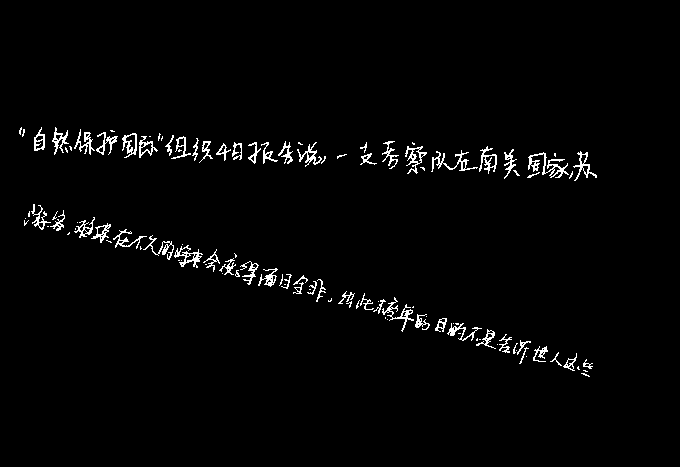 "自然保护国际"组织4日报告说,一支考察队在南美国家苏
游客,难媒在不久的将来会变得面目全非。出此榜单的目的不是告诉世人这些